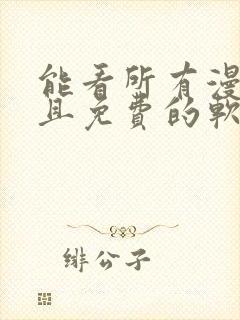 能看所有漫
且免费的軟
緋公子